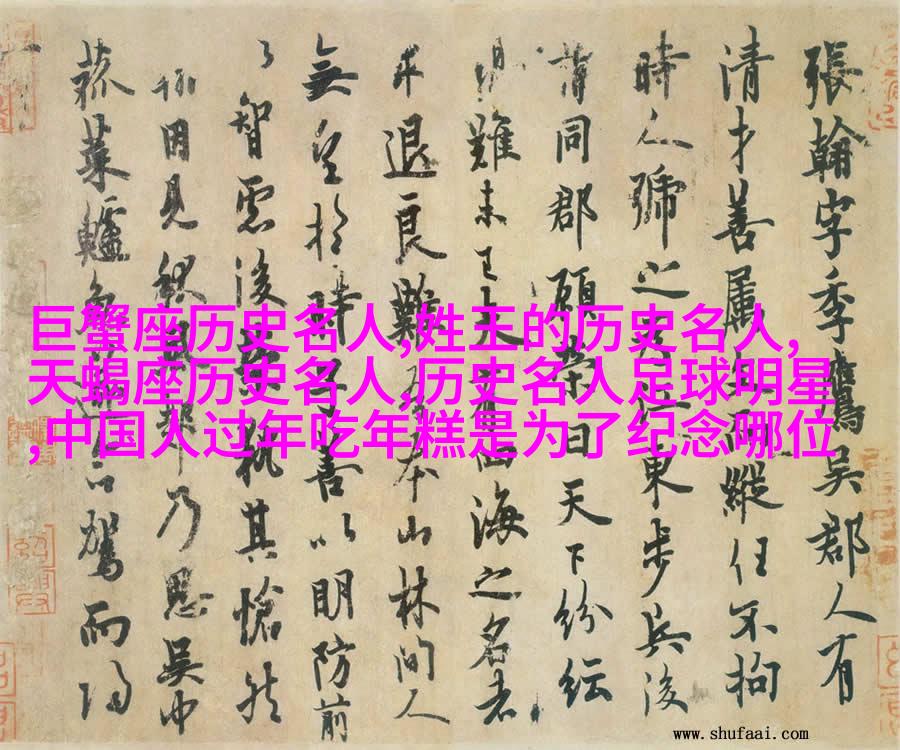 張翰字季鷹吳郡人有
清才善属文而縱任不拘
時人號之為江東步兵後
同郡顧榮曰天下紛紜
難未已夫有四海之名者
求退良難吾本山林間人
無望於時子善以明防前
智慮後榮執其愴然
因見秋風起乃思吳中
菰菜鱸魚遂命駕而歸
巨蟹座历史名人,姓王的历史名人,
天蝎座历史名人,历史名人足球明星
,中国人过年吃年糕是为了纪念哪位
www.shufaai.com